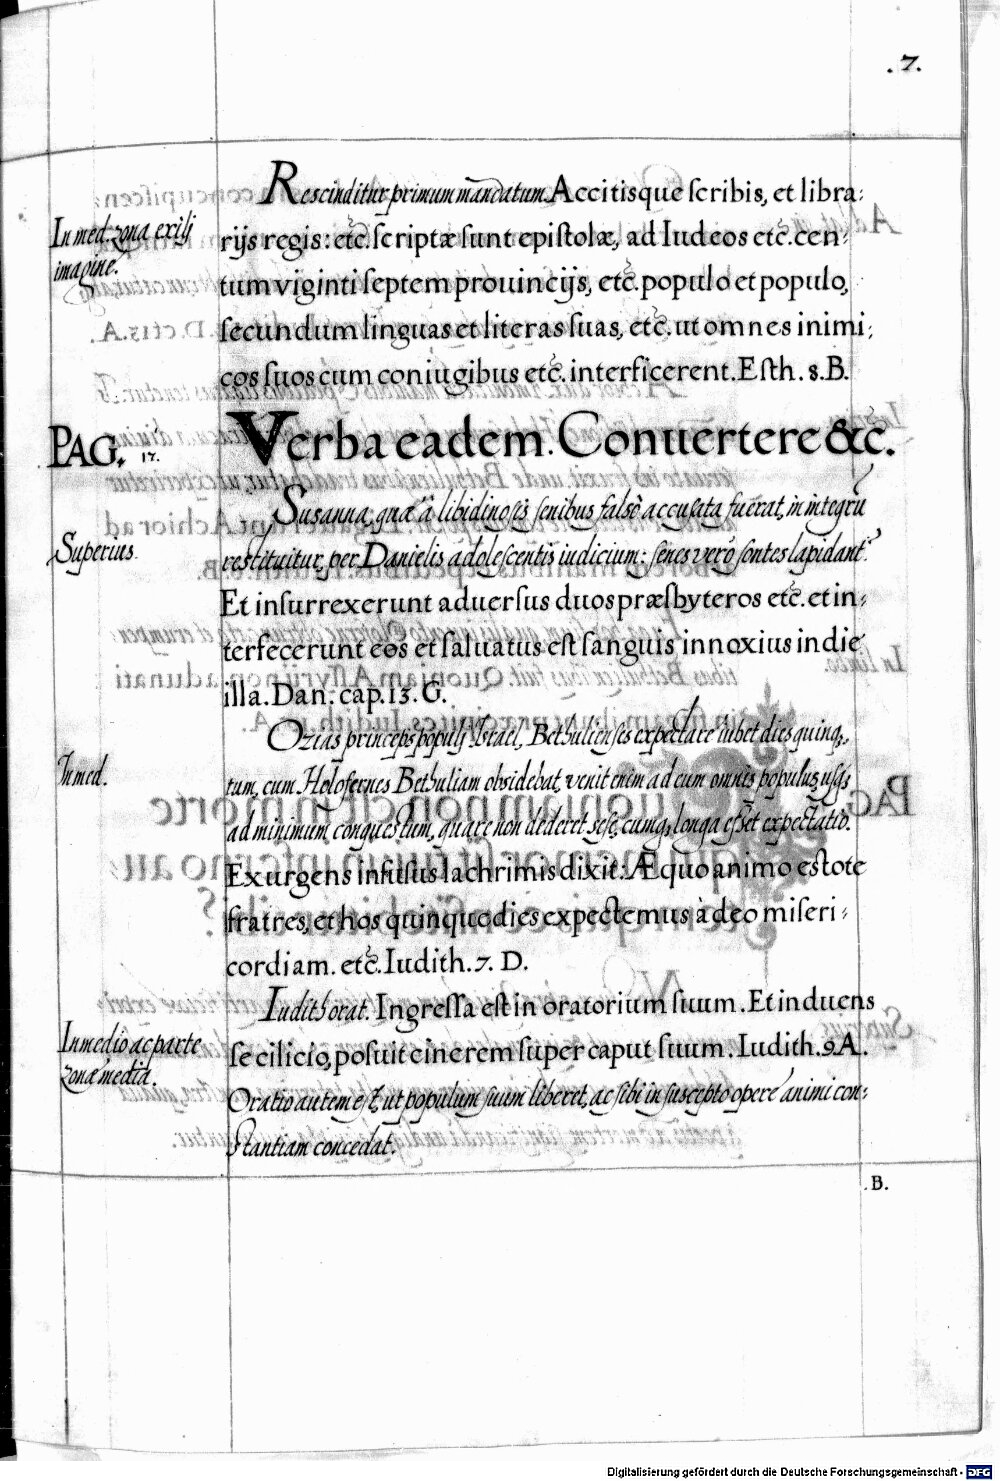 .7.
In med. zona exilj
imagine.
Rescinditur primum mandatum. Accitisque scribis, et libra-
rijs regis: etc. scriptæ sunt epistolæ, ad Iudeos etc. cen-
tum viginti septem prouincijs, etc. populo et populo,
secundum linguas et literas suas, etc. ut omnes inimi-
cos suos cum coniugibus etc. interficerent. Esth. 8. B.
PAG. 17.
Verba eadem. Conuertere &c.
Susanna, quæ à libidinosis senibus falso accusata fuerat, in integrū
Superius.
restituitur, per Danielis adolescentis iudicium: senes vero sontes lapidant.
Et insurrexerunt aduersus duos præsbyteros etc. et in-
terfecerunt eos et saluatus est sanguis innoxius in die
illa. Dan. cap. 13. G.
Ozias princeps populj Israel, Bethulienses expectare iubet dies quinq,
In med.
tum, cum Holofernes Bethuliam obsidebat, venit enim ad eum omnis populus, usq
ad minimum conquestum, quare non dederet sese, cumq longa esset expectatio.
Exurgens infusus lachrimis dixit: Æquo animo estote
fratres, et hos quinque dies expectemus à deo miseri-
cordiam. etc. Iudith. 7. D.
Iudith orat. Ingressa est in oratorium suum. Et induens
In medio ac parte
zonæ media.
se cilicio, posuit cinerem super caput suum. Iudith. 9 A.
Oratio autem est, ut populum suum liberet, ac sibi in suscepto opere animi con-
stantiam concedat.
.B.
Digitalisierung gefördert durch die Deutsche Forschungsgemeinschaft - DFG